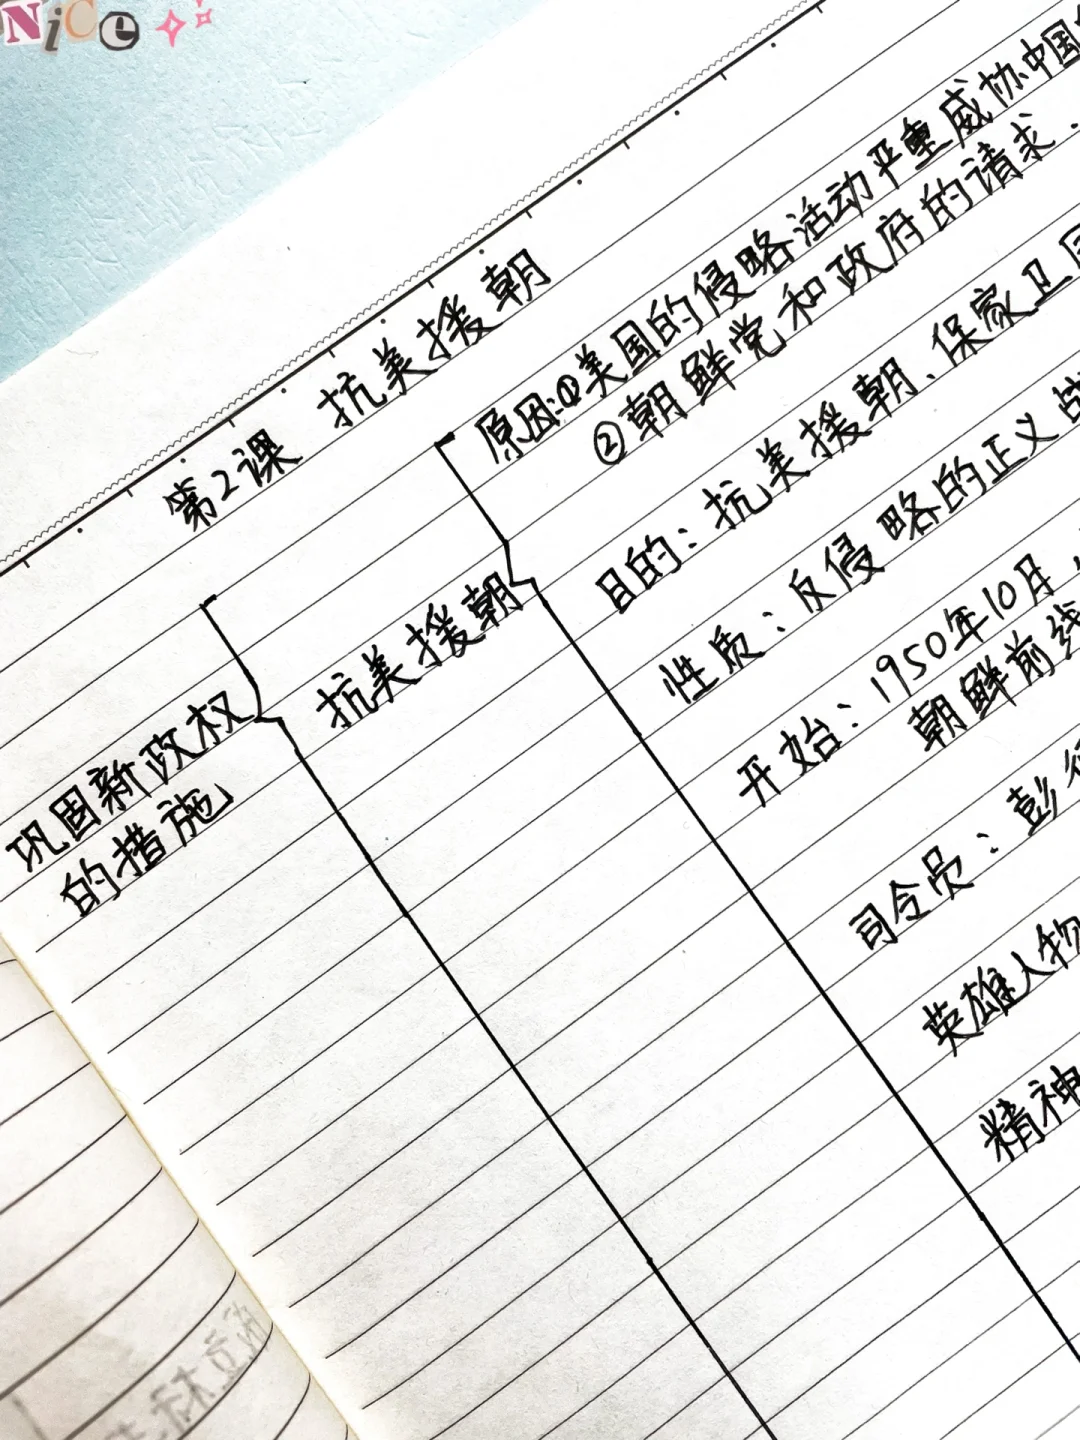 Nice
第2课 抗美援朝
原因:①美国的侵略活动严重威协中国
②朝鲜党和政府的请求.
目的:抗美援朝、保家卫
性质:反侵略的正义战
抗美援朝
开始:1950年10月,
朝鲜前线
巩固新政权
的措施
司令员:彭
英雄人物
精神